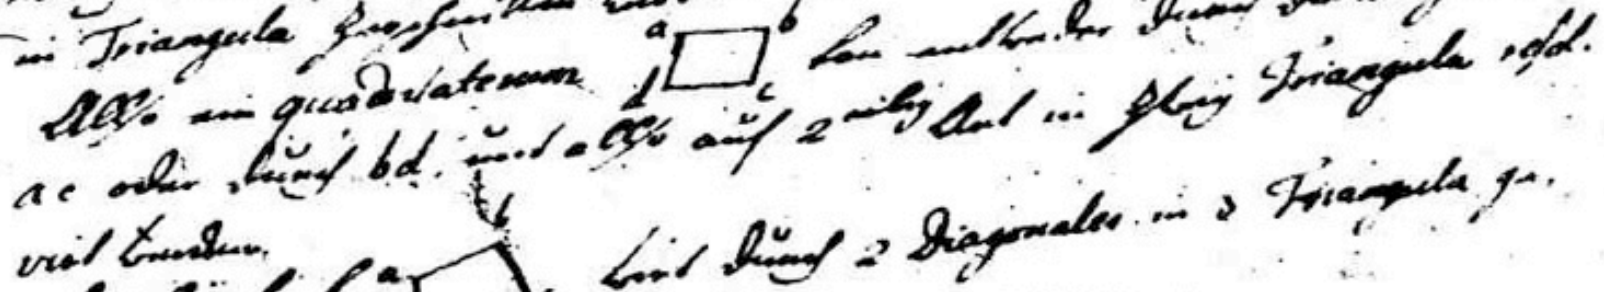 in Triangula zerschnitten
Allso ein quadrilaterum a b c d kan entweder durch
ac oder durch bd. und allso auf 2erley Art in zwey Triangula resol-
virt werden.
a b wird durch 2 Diagonales in 3 Triangula ge-